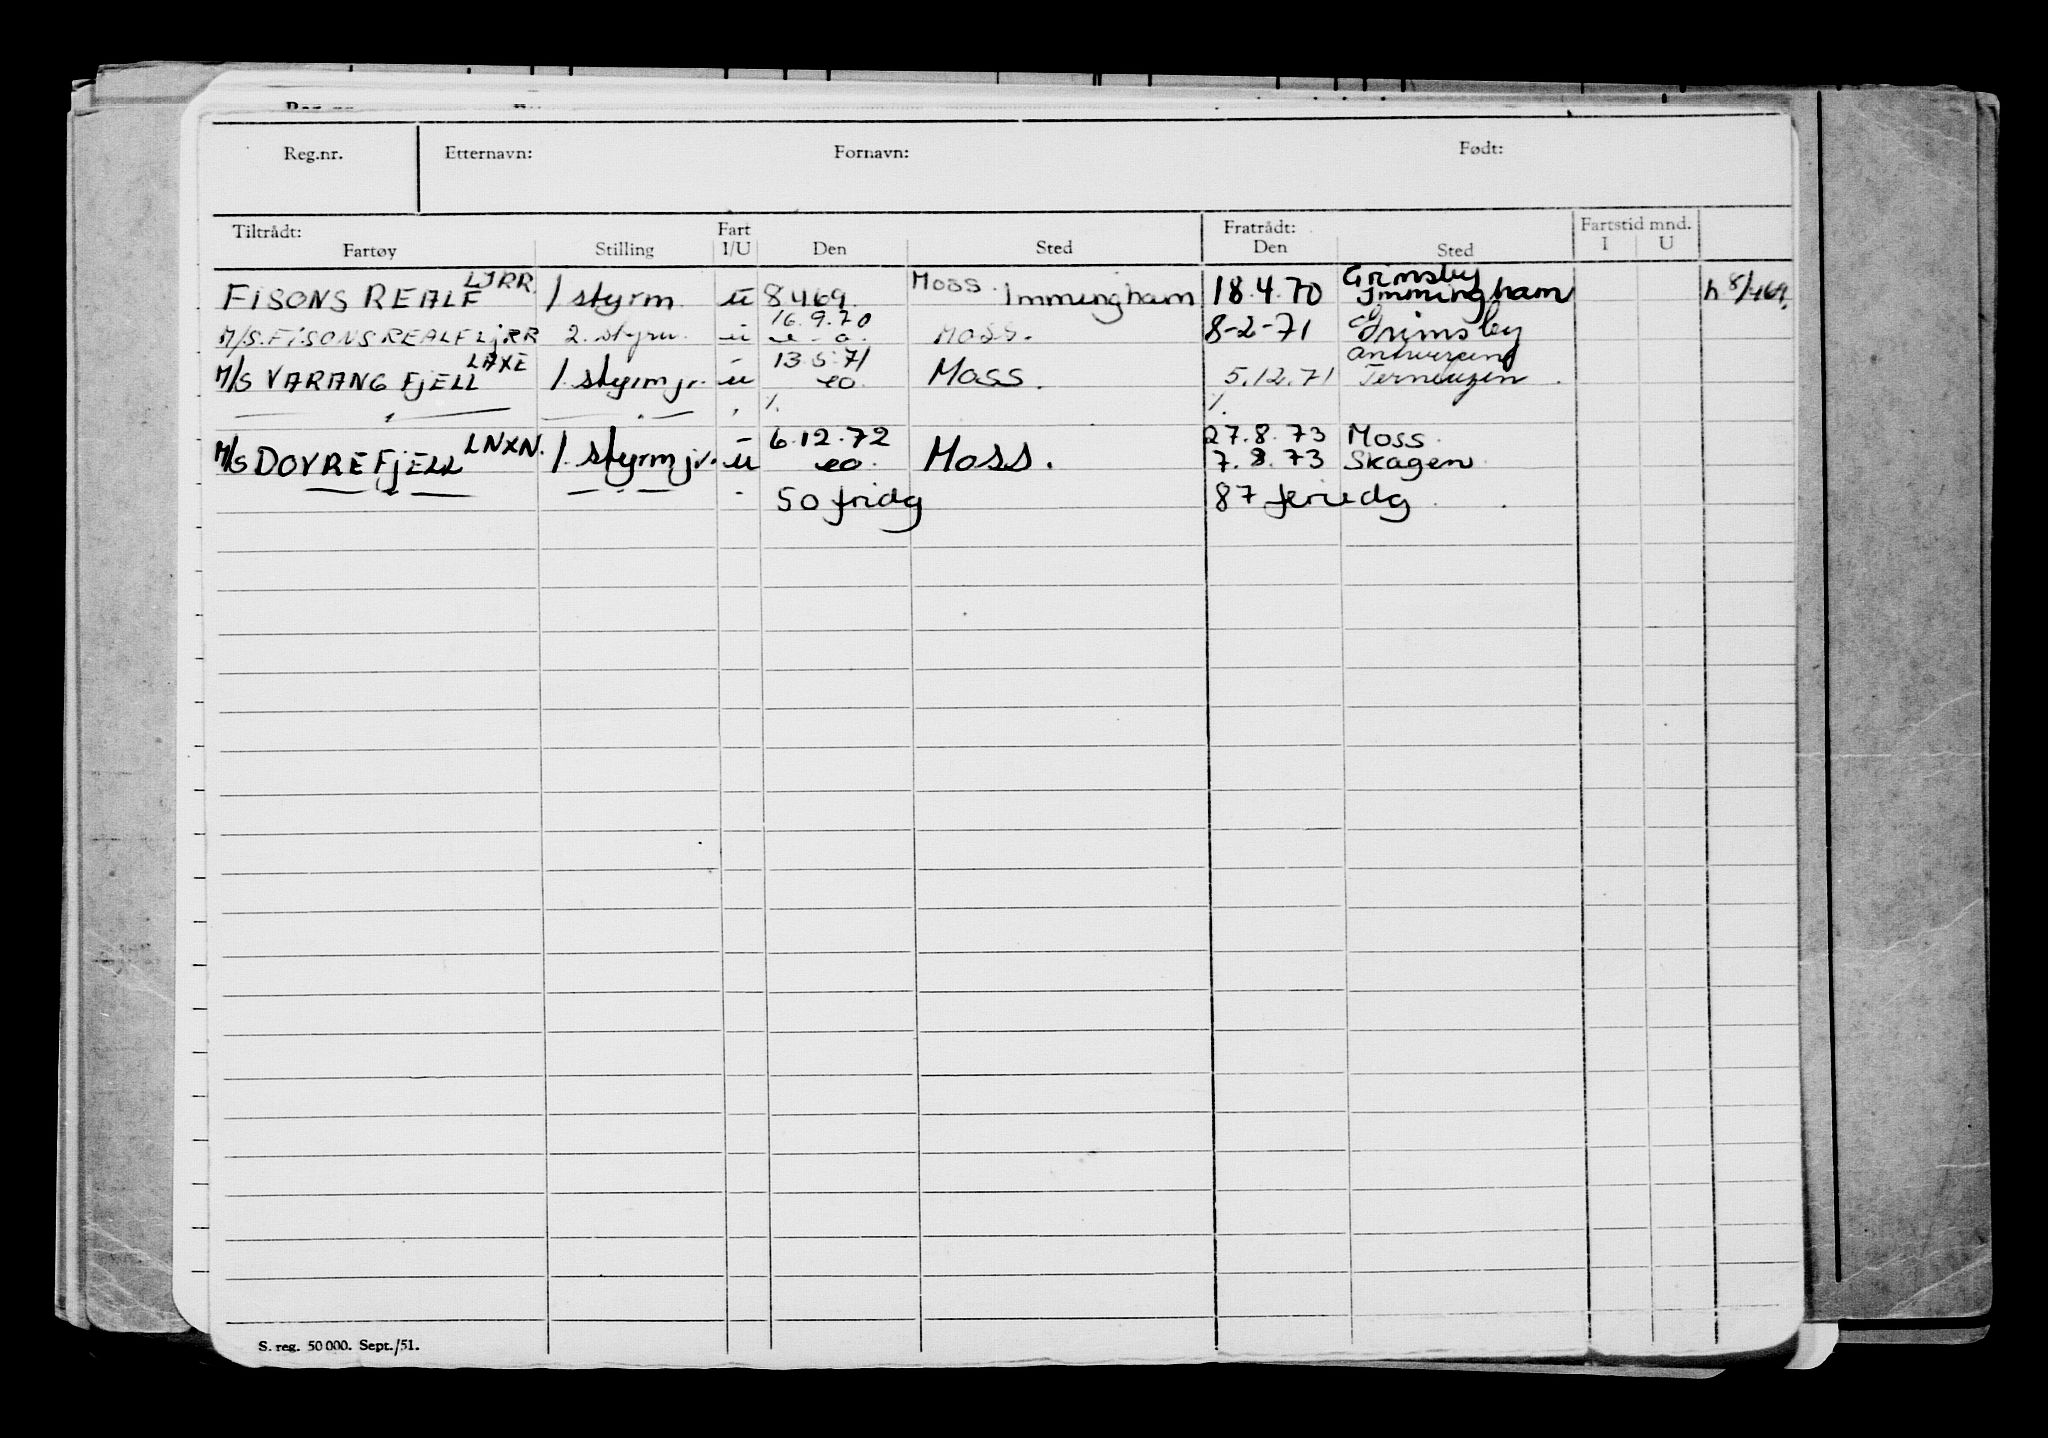 Reg.nr. Etternavn: Fornavn: Født:
Tiltrådt: Fart Fratrådt: Fartstid mnd.
Fartøy Stilling I/U Den Sted Den Sted I U
LJRR. Moss. Grimsby
FISONS REALF 1 styrm u 8469. Immingham 18.4.70 Immingham h 8/469.
16.9.70
M/S. FISONSREALF LJRR 2. styrm. u Moss. 8-2-71 Grimsby
LAXE 13.5.71 Antwerpen
M/S VARANG FJELL 1. styrm jr. u eo. Moss. 5.12.71 Terneuzen.
— " — — . — , %. %.
LNXN. 6.12.72 27.8.73 Moss.
M/S DOVREFJELL 1. styrm jr. u eo. Moss. 7.8.73 Skagen
— " — — " — - 50 fridg 87 feriedg.
S. reg. 50 000. Sept./51.